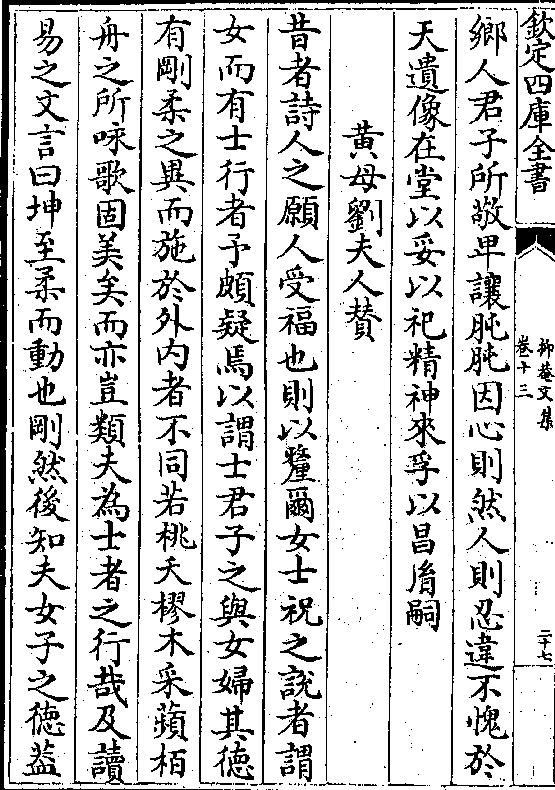 欽定四庫全書
抑菴文集
卷十三
二十七
鄉人君子所敬卑讓肫肫因心則然人則忍違不愧於
天遺像在堂以妥以祀精神來孚以昌胤嗣
黄母劉夫人贊
昔者詩人之願人受福也則以釐爾女士祝之説者謂
女而有士行者予頗疑焉以謂士君子之與女婦其德
有剛柔之異而施於外内者不同若桃夭樛木采蘋栢
舟之所咏歌固美矣而亦豈類夫為士者之行哉及讀
易之文言曰坤至柔而動也剛然後知夫女子之德葢